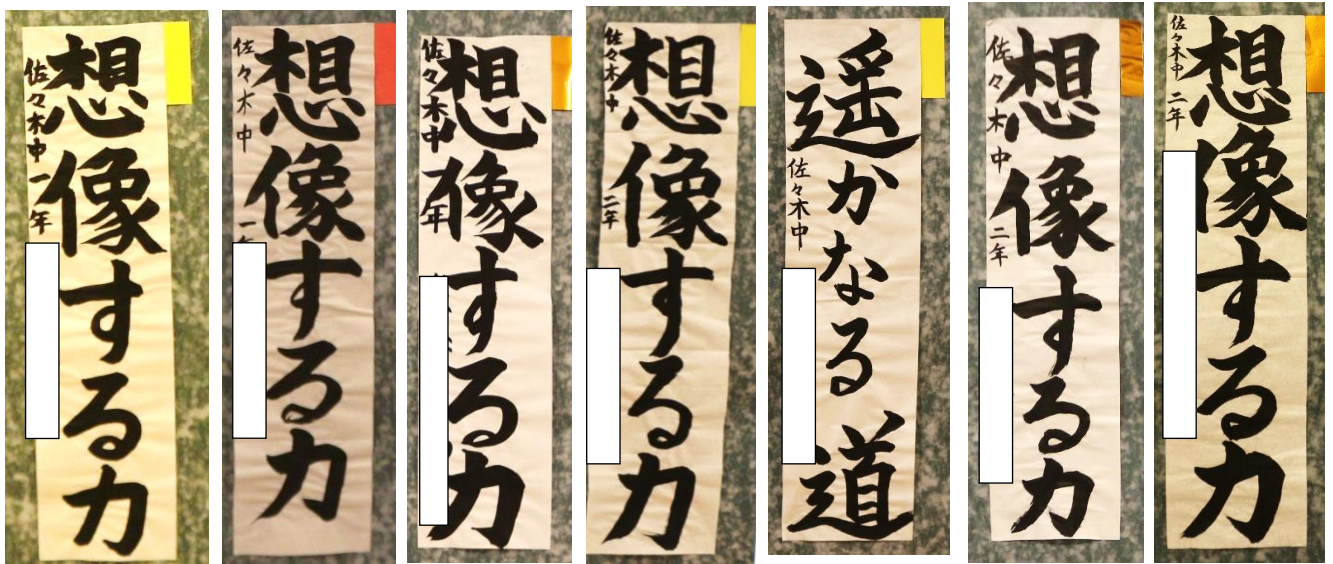 想像する力
佐々木中一年
想像する力
佐々木中 一年
想像する力
佐々木中 年
想像する力
佐々木中 二年
遥かなる道
佐々木中
想像する力
佐々木中 二年
想像する力
佐々木中 二年